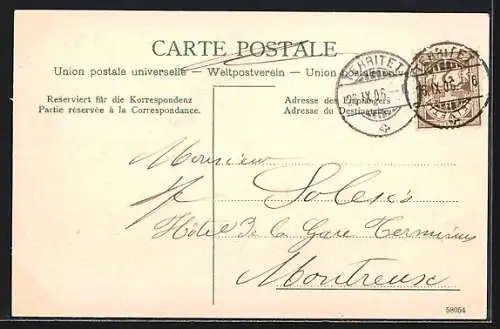 CARTE POSTALE
Union postale universelle — Weltpostverein — Union postale
Reserviert für die Korrespondenz
Partie réservée à la Correspondance.
Adresse des Empfängers
Adresse du Destinataire
TERRITET
26.IX.06.
TERRITET
IX.06.
Monsieur
Hôtel de la Gare Terminus
Montreux
58054